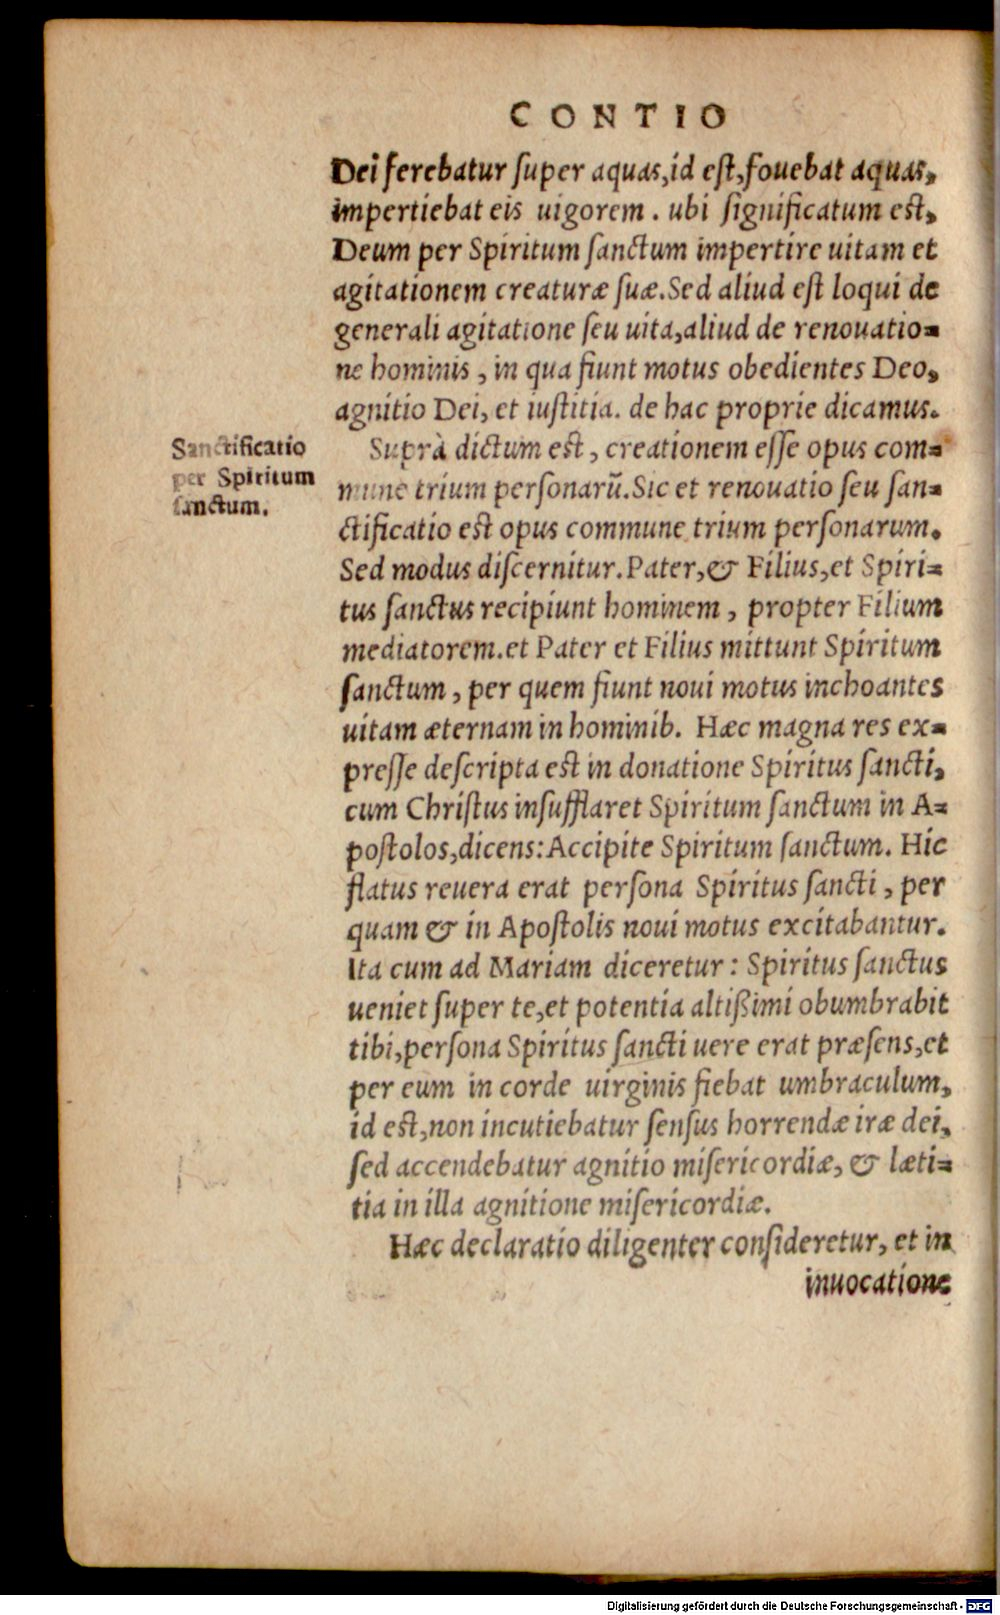 CONTIO
Dei ferebatur ſuper aquas, id eſt, fouebat aquas,
impertiebat eis uigorem. ubi ſignificatum eſt,
Deum per Spiritum ſanctum impertire uitam et
agitationem creaturæ ſuæ. Sed aliud eſt loqui de
generali agitatione ſeu uita, aliud de renouatio-
ne hominis, in qua fiunt motus obedientes Deo,
agnitio Dei, et iuſtitia. de hac proprie dicamus.
Sanctificatio
per Spiritum
ſanctum.
Suprà dictum eſt, creationem eſſe opus com-
mune trium perſonarũ. Sic et renouatio ſeu ſan-
ctificatio eſt opus commune trium perſonarum.
Sed modus diſcernitur. Pater, & Filius, et Spiri-
tus ſanctus recipiunt hominem, propter Filium
mediatorem. et Pater et Filius mittunt Spiritum
ſanctum, per quem fiunt noui motus inchoantes
uitam æternam in hominib. Hæc magna res ex-
preſſe deſcripta eſt in donatione Spiritus ſancti,
cum Chriſtus inſufflaret Spiritum ſanctum in A-
poſtolos, dicens: Accipite Spiritum ſanctum. Hic
flatus reuera erat perſona Spiritus ſancti, per
quam & in Apoſtolis noui motus excitabantur.
Ita cum ad Mariam diceretur: Spiritus ſanctus
ueniet ſuper te, et potentia altißimi obumbrabit
tibi, perſona Spiritus ſancti uere erat præſens, et
per eum in corde uirginis fiebat umbraculum,
id eſt, non incutiebatur ſenſus horrendæ iræ dei,
ſed accendebatur agnitio miſericordiæ, & læti-
tia in illa agnitione miſericordiæ.
Hæc declaratio diligenter conſideretur, et in
inuocatione
Digitalisierung gefördert durch die Deutsche Forschungsgemeinschaft - DFG